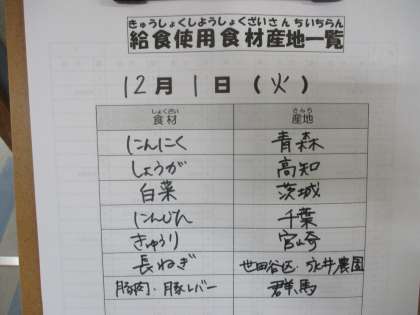 きゅうしょくしようしょくざいさんちいちらん
給食使用食材産地一覧
12月1日(火)
しょくざい さんち
食材 産地
にんにく 青森
しょうが 高知
白菜 茨城
にんじん 千葉
きゅうり 宮崎
長ねぎ 世田谷区・永井農園
豚肉・豚レバー 群馬